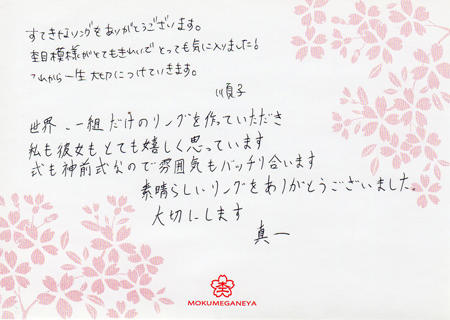 すてきなリングをありがとうございます。
杢目模様がとてもきれいで とっても気に入りました!
これから一生大切につけていきます。
順子
世界で一組だけのリングを作っていただき
私も彼女もとても嬉しく思っています
式も神前式なので雰囲気もバッチリ合います
素晴らしいリングをありがとうございました。
大切にします
真一
杢
MOKUMEGANEYA